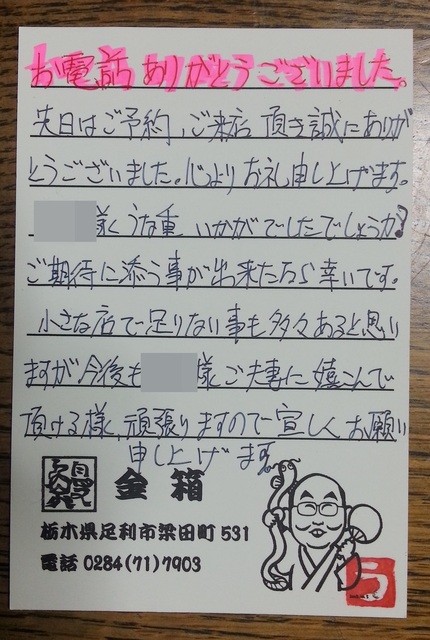 お電話ありがとうございました。
先日はご予約、ご来店頂き誠にありが
とうございました。心よりお礼申し上げます。
様、うな重いかがでしたでしょうか?
ご期待に添う事が出来たなら幸いです。
小さな店で足りない事も多々あると思い
ますが今後も 様ご夫妻に嬉こんで
頂ける様、頑張りますので宜しくお願い
申し上げます。
金箱
栃木県足利市梁田町531
電話 0284(71)7903
う